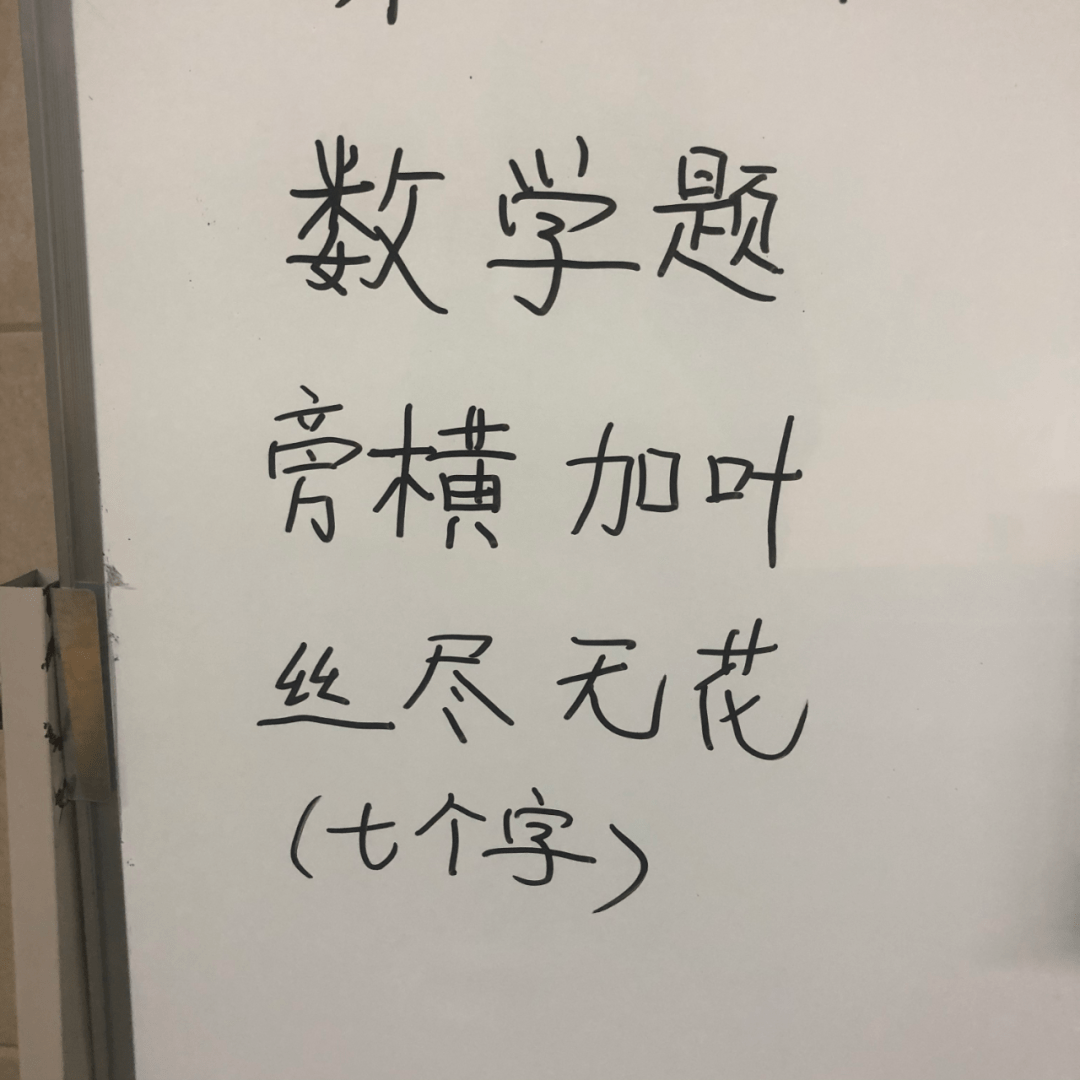 数学题
旁横加叶
丝尽无花
(七个字)